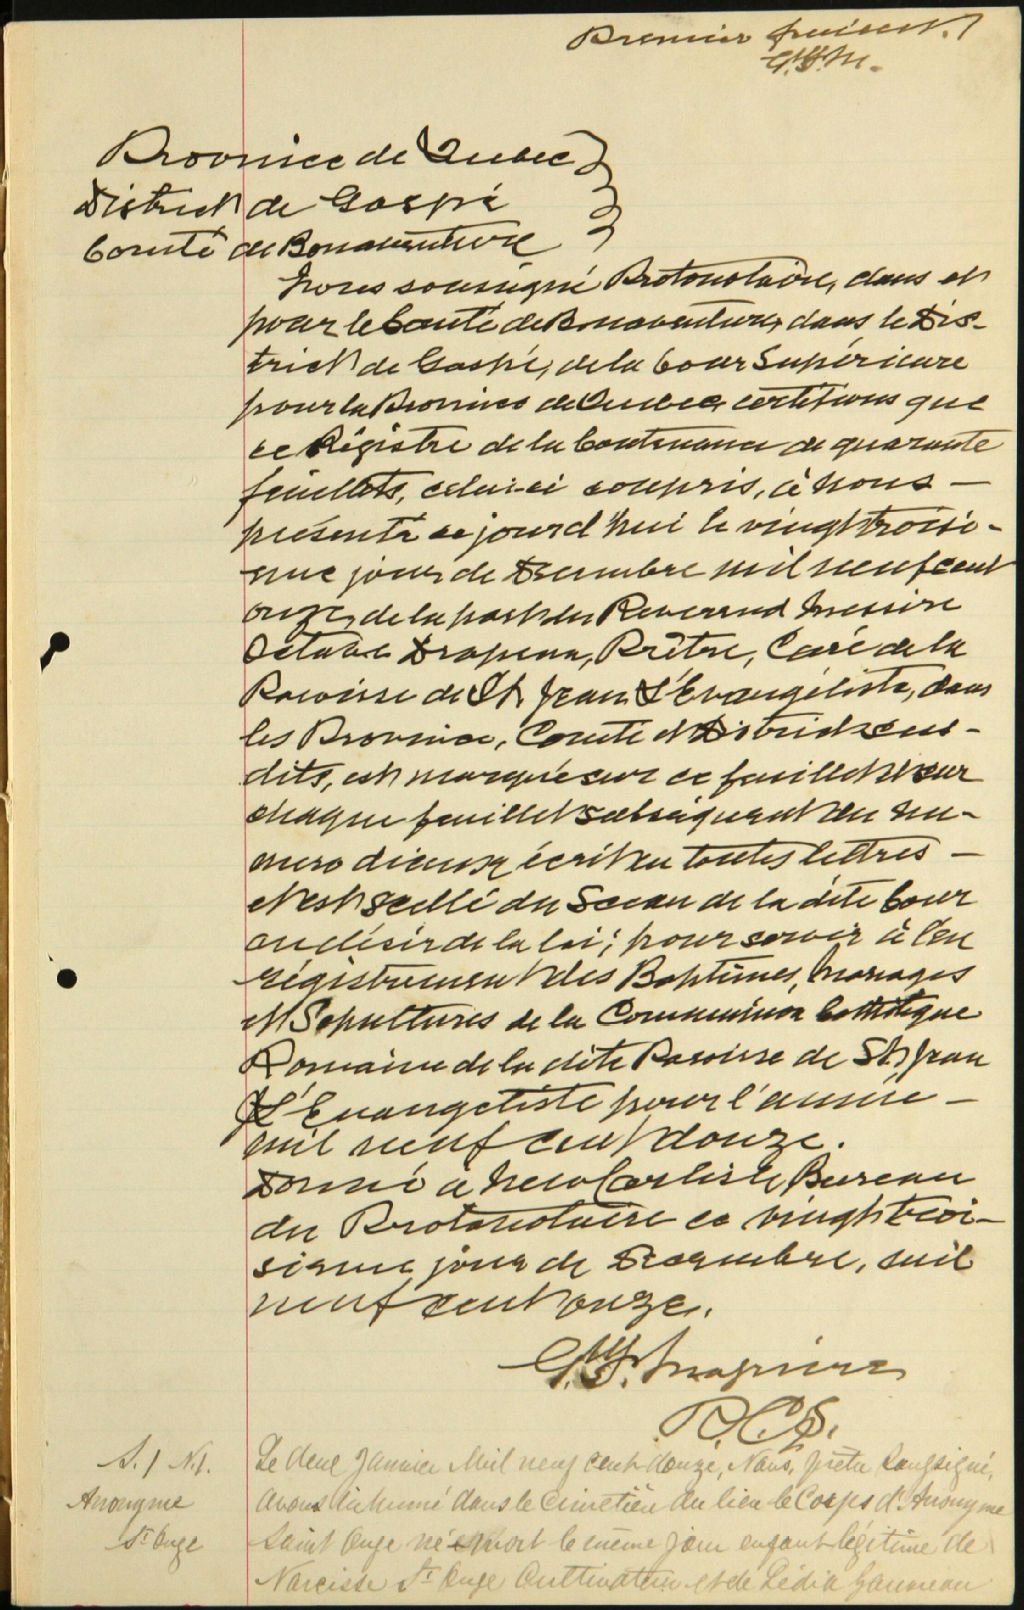 Premier feuillet. 1
G.F.M.
Province de Québec
District de Gaspé
Comté de Bonaventure
Nous soussigné Protonotaire, dans et
pour le Comté de Bonaventure, dans le Dis-
trict de Gaspé, de la Cour Supérieure
pour la Province de Québec, certifions que
ce Régistre de la Contenance de quarante
feuillets, celui-ci compris, à nous —
présenté ce jourd'hui le vingt troisi-
ème jour de Décembre mil neuf cent
onze, de la part du Reverend Messire
Octave Drapeau, Prêtre, Curé de la
Paroisse de St Jean L'Evangéliste, dans
les Province, Comté et District sus-
dits, est marqué sur ce feuillet et sur
chaque feuillet subséquent du nu-
mero d'iceux écrit en toutes lettres —
et est scellé du Sceau de la dite Cour
au désir de la loi; pour servir à l'en
régistrement des Baptêmes, Mariages
et Sepultures de la Communion Catholique
Romaine de la dite Paroisse de St Jean
L'Evangeliste pour l'année —
mil neuf cent douze.
Donné à New Carlisle, Bureau
du Protonotaire ce vingt troi-
sième jour de Décembre, mil
neuf cent onze.
G.F. Maguire
P.C.S.
S. 1 N.1.
Anonyme
St Onge
Le deux Janvier Mil neuf cent douze, Nous, prêtre soussigné,
avons inhumé dans le cimetière du lieu le Corps d'Anonyme
Saint Onge né et mort le même jour enfant légitime de
Narcisse St Onge Cultivateur et de Lédia